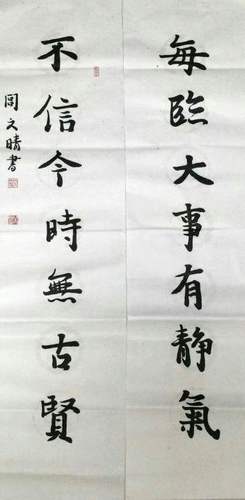 每臨大事有靜氣
不信今時無古賢
闫文晴書